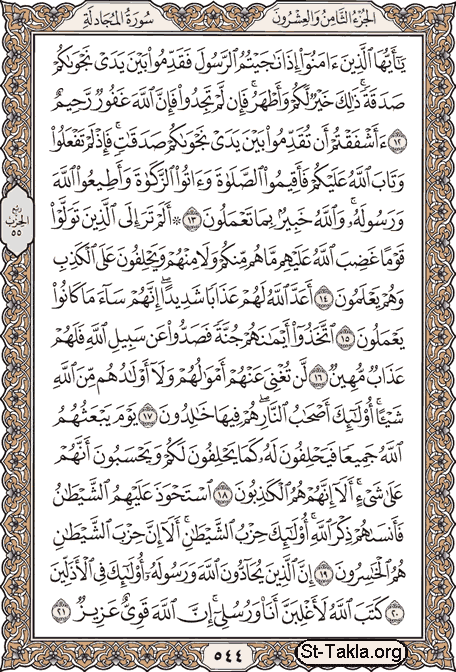 سُورَةُ المُجَادلَة
الجُزْءُ الثَّامِنُ وَالعِشْرُونَ
يَٰٓأَيُّهَا ٱلَّذِينَ ءَامَنُوٓاْ إِذَا نَٰجَيْتُمُ ٱلرَّسُولَ فَقَدِّمُواْ بَيْنَ يَدَىْ نَجْوَىٰكُمْ
صَدَقَةً ۚ ذَٰلِكَ خَيْرٌ لَّكُمْ وَأَطْهَرُ ۚ فَإِن لَّمْ تَجِدُواْ فَإِنَّ ٱللَّهَ غَفُورٌ رَّحِيمٌ
١٢ ءَأَشْفَقْتُمْ أَن تُقَدِّمُواْ بَيْنَ يَدَىْ نَجْوَىٰكُمْ صَدَقَٰتٍ ۚ فَإِذْ لَمْ تَفْعَلُواْ
وَتَابَ ٱللَّهُ عَلَيْكُمْ فَأَقِيمُواْ ٱلصَّلَوٰةَ وَءَاتُواْ ٱلزَّكَوٰةَ وَأَطِيعُواْ ٱللَّهَ
وَرَسُولَهُۥ ۚ وَٱللَّهُ خَبِيرٌۢ بِمَا تَعْمَلُونَ ١٣ ۞ أَلَمْ تَرَ إِلَى ٱلَّذِينَ تَوَلَّوْاْ
قَوْمًا غَضِبَ ٱللَّهُ عَلَيْهِم مَّا هُم مِّنكُمْ وَلَا مِنْهُمْ وَيَحْلِفُونَ عَلَى ٱلْكَذِبِ
وَهُمْ يَعْلَمُونَ ١٤ أَعَدَّ ٱللَّهُ لَهُمْ عَذَابًا شَدِيدًا ۖ إِنَّهُمْ سَآءَ مَا كَانُواْ
يَعْمَلُونَ ١٥ ٱتَّخَذُوٓاْ أَيْمَٰنَهُمْ جُنَّةً فَصَدُّواْ عَن سَبِيلِ ٱللَّهِ فَلَهُمْ
عَذَابٌ مُّهِينٌ ١٦ لَّن تُغْنِىَ عَنْهُمْ أَمْوَٰلُهُمْ وَلَآ أَوْلَٰدُهُم مِّنَ ٱللَّهِ
شَيْـًٔا ۚ أُوْلَٰٓئِكَ أَصْحَٰبُ ٱلنَّارِ ۖ هُمْ فِيهَا خَٰلِدُونَ ١٧ يَوْمَ يَبْعَثُهُمُ
ٱللَّهُ جَمِيعًا فَيَحْلِفُونَ لَهُۥ كَمَا يَحْلِفُونَ لَكُمْ ۖ وَيَحْسَبُونَ أَنَّهُمْ
عَلَىٰ شَىْءٍ ۚ أَلَآ إِنَّهُمْ هُمُ ٱلْكَٰذِبُونَ ١٨ ٱسْتَحْوَذَ عَلَيْهِمُ ٱلشَّيْطَٰنُ
فَأَنسَىٰهُمْ ذِكْرَ ٱللَّهِ ۚ أُوْلَٰٓئِكَ حِزْبُ ٱلشَّيْطَٰنِ ۚ أَلَآ إِنَّ حِزْبَ ٱلشَّيْطَٰنِ
هُمُ ٱلْخَٰسِرُونَ ١٩ إِنَّ ٱلَّذِينَ يُحَآدُّونَ ٱللَّهَ وَرَسُولَهُۥٓ أُوْلَٰٓئِكَ فِى ٱلْأَذَلِّينَ
٢٠ كَتَبَ ٱللَّهُ لَأَغْلِبَنَّ أَنَا۠ وَرُسُلِىٓ ۚ إِنَّ ٱللَّهَ قَوِىٌّ عَزِيزٌ ٢١
ربع
الحزب
٥٥
٥٤٤
St-Takla.org